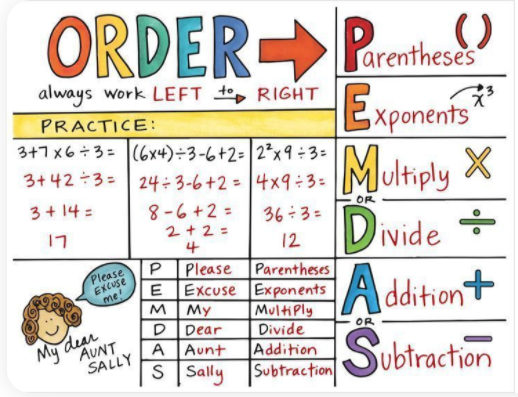 ORDER
always work LEFT to RIGHT
PRACTICE:
3+7×6÷3=
3+42÷3=
3+14=
17
(6x4)÷3-6+2=
24÷3-6+2=
8-6+2=
2+2=
4
2²x9÷3=
4x9÷3=
36÷3=
12
Please
Excuse
me!
My dear
AUNT
SALLY
P Please Parentheses
E Excuse Exponents
M My MultiPly
D Dear Divide
A Aunt Addition
S Sally Subtraction
Parentheses ( )
Exponents x³
Multiply ×
OR
Divide ÷
Addition +
OR
Subtraction −